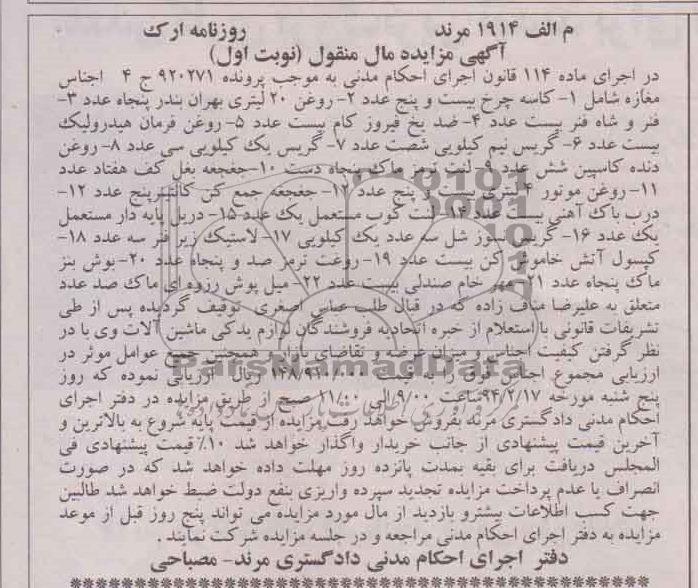 م الف ۱۹۱۴ مرند روزنامه ارک
آگهی مزایده مال منقول (نوبت اول)
در اجرای ماده ۱۱۴ قانون اجرای احکام مدنی به موجب پرونده ۹۲۰۲۷۱ ج ۴ اجناس
مغازه شامل ۱- کاسه چرخ بیست و پنج عدد ۲- روغن ۲۰ لیتری بهران بندر پنجاه عدد ۳-
فنر و شاه فنر بیست عدد ۴- ضد یخ فیروز کام بیست عدد ۵- روغن فرمان هیدرولیک
بیست عدد ۶- گریس نیم کیلویی شصت عدد ۷- گریس یک کیلویی سی عدد ۸- روغن
دنده کاسپین شش عدد ۹- لنت ترمز ماک پنجاه دست ۱۰- جغجغه بغل کف هفتاد عدد
۱۱- روغن موتور ۴ لیتری بیست و پنج عدد ۱۲- جغجغه جمع کن کالتر پنج عدد ۱۳-
درب باک آهنی بیست عدد ۱۴- لنت کوب مستعمل یک عدد ۱۵- دریل پایه دار مستعمل
یک عدد ۱۶- گریس سوز شل سه عدد یک کیلویی ۱۷- لاستیک زیر فنر سه عدد ۱۸-
کپسول آتش خاموش کن بیست عدد ۱۹- روغت ترمز صد و پنجاه عدد ۲۰- بوش بنز
ماک پنجاه عدد ۲۱- مهر خام صندلی بیست عدد ۲۲- میل پوش رزوه ای ماک صد عدد
متعلق به علیرضا مناف زاده که در قبال طلب عباس اصغری توقیف گردیده پس از طی
تشریفات قانونی با استعلام از خبره اتحادیه فروشندگان لوازم یدکی ماشین آلات وی با در
نظر گرفتن کیفیت اجناس و میزان عرضه و تقاضای بازار و همچنین جمیع عوامل موثر در
ارزیابی مجموع اجناس فوق را به قیمت ریال ارزیابی نموده که روز
پنج شنبه مورخه ۹۴/۲/۱۷ ساعت ۹/۰۰ الی ۱۱/۰۰ صبح از طریق مزایده در دفتر اجرای
احکام مدنی دادگستری مرند بفروش خواهد رفت مزایده از قیمت پایه شروع به بالاترین و
آخرین قیمت پیشنهادی از جانب خریدار واگذار خواهد شد ۱۰٪ قیمت پیشنهادی فی
المجلس دریافت برای بقیه بمدت پانزده روز مهلت داده خواهد شد که در صورت
انصراف یا عدم پرداخت مزایده تجدید سپرده واریزی بنفع دولت ضبط خواهد شد طالبین
جهت کسب اطلاعات بیشترو بازدید از مال مورد مزایده می تواند پنج روز قبل از موعد
مزایده به دفتر اجرای احکام مدنی مراجعه و در جلسه مزایده شرکت نمایند .
دفتر اجرای احکام مدنی دادگستری مرند- مصباحی
ParsNamadData